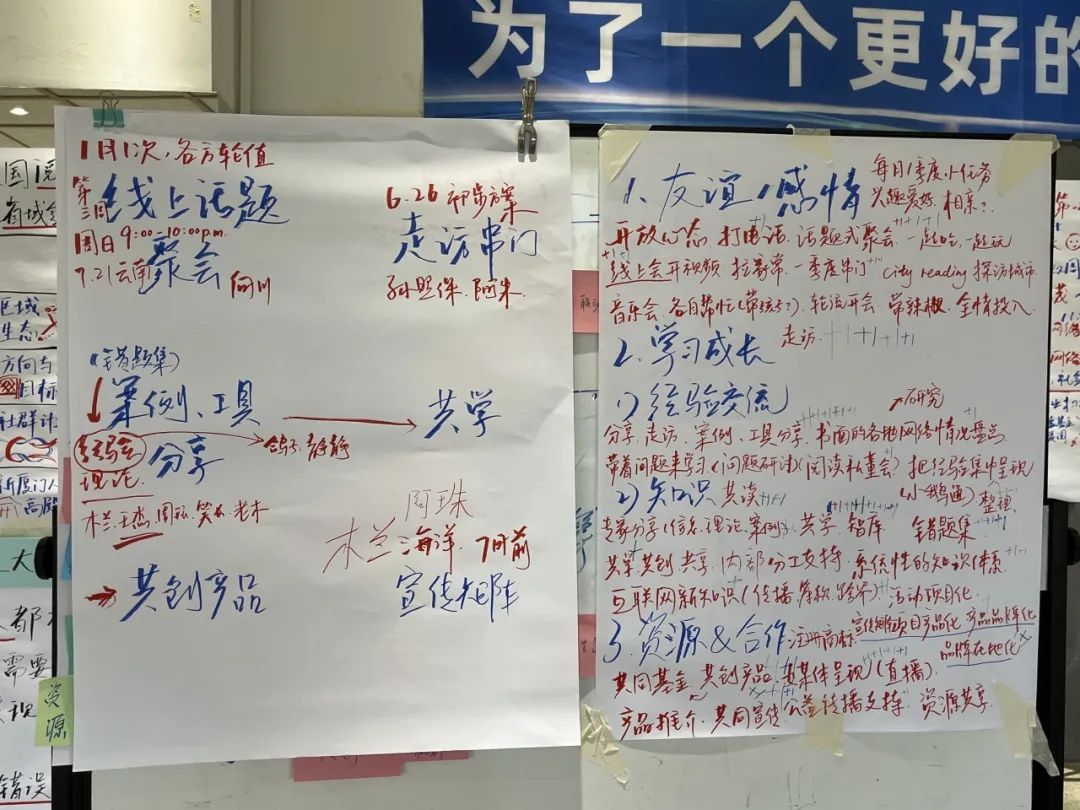 为了一个更好的
1月1次，各方轮值
第三周
线上话题
周日9:00-10:00p.m.
聚会
7.21云南
6.26初步方案
走访串门
阿朱
(错题集)
案例、工具
共学
经验
分享
鸽子、静静
理论
木兰、王杰、周
阿珠
木兰 海洋 7月前
共创产品
宣传矩阵
1、友谊/感情
每月/季度小任务
兴趣爱好、相亲?
开放心态 打电话、话题式聚会、一起吃、一起玩
线上会开视频、拉家常、一季度串门 city reading 探访城市
音乐会、各自帮忙(带孩子?)、轮流开会、带辣椒、全情投入
2、学习成长
走访
1)经验交流
研究
分享、走访、案例、工具分享、书面的各地网络情况盘点
带着问题来学习(问题研讨)(阅读私董会)把经验集中呈现
2)知识 共读
(小鹅通)
整理
专家分享(信息、理论、案例)、共学 智库
错题集
共学共创共享、内部分工支持、系统性的知识体系
互联网新知识(传播、筹款、跨界) 活动项目化
3、资源&合作
注册商标 宣传矩阵 项目产品化 产品品牌化
品牌在地化
共同基金、共创产品、媒体呈现(直播)
产品推介、共同宣传 公益传播支持、资源共享
资源
大
需要
错误
区域
生态
方向与
目标
社群计